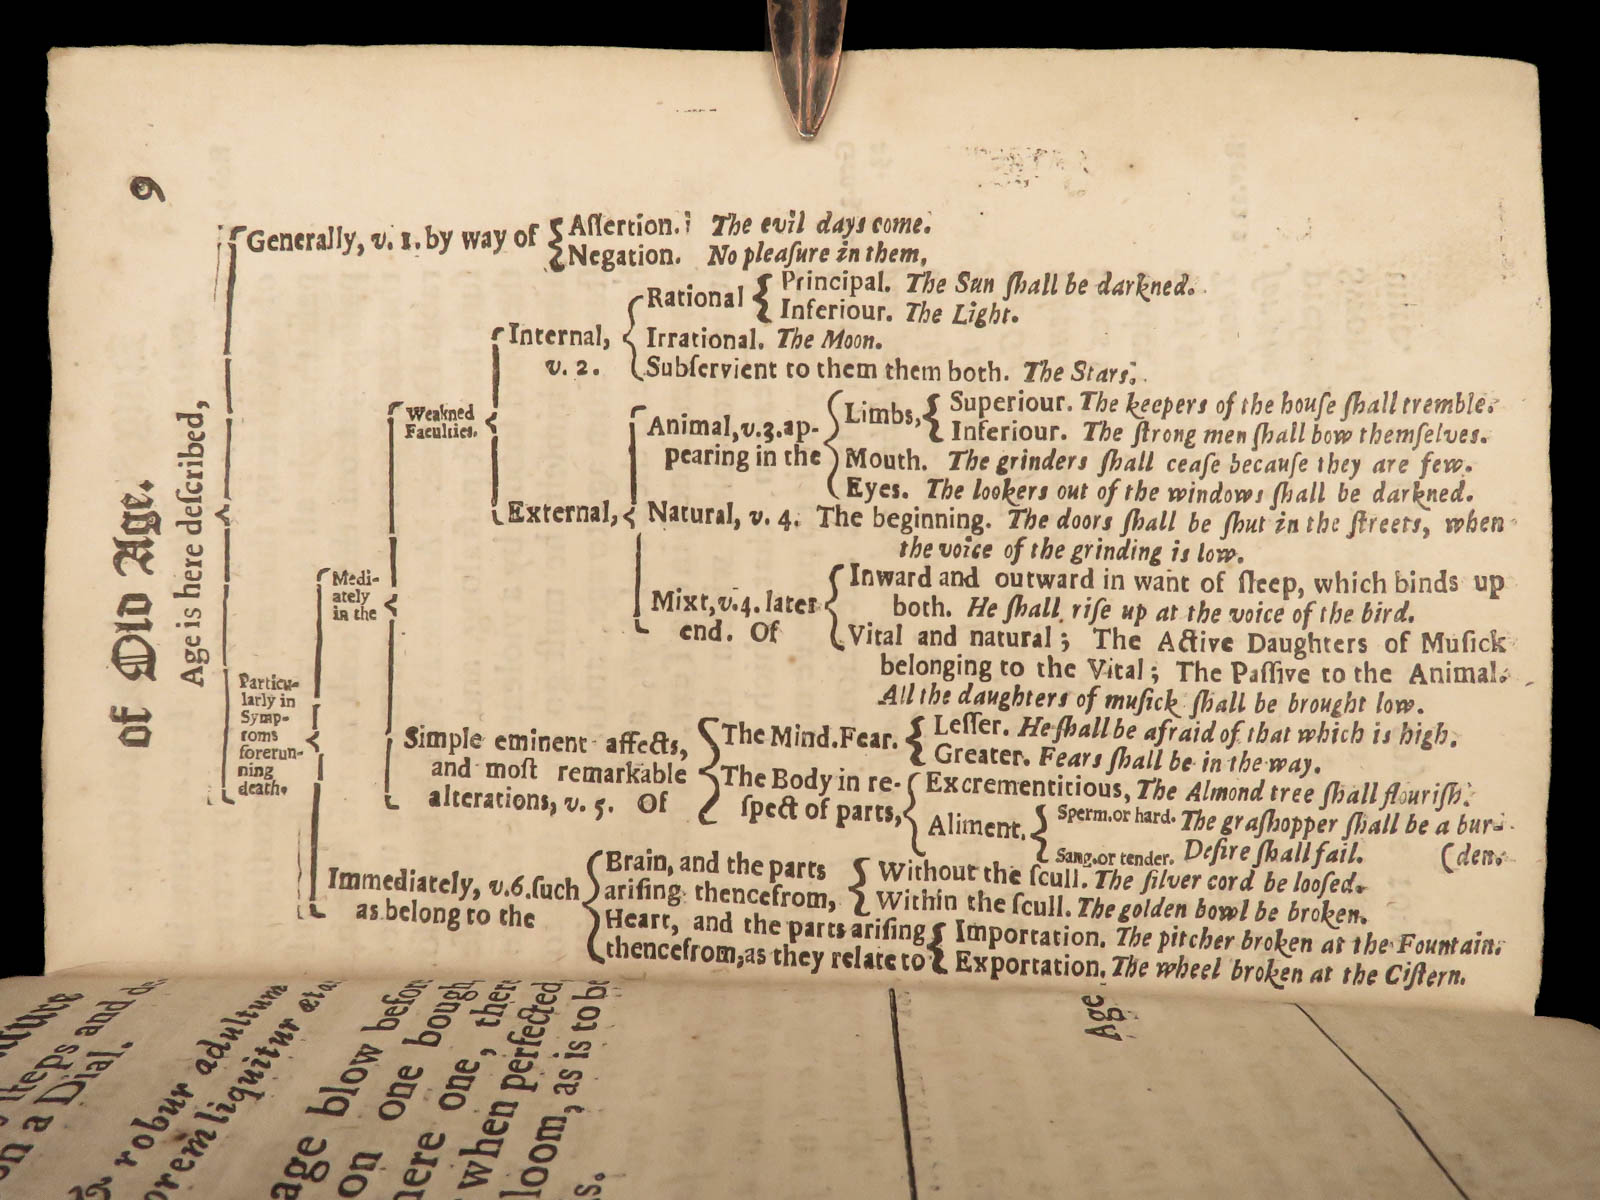 9
of Old Age.
Age is here deſcribed,
Generally, v. 1. by way of
Aſſertion. The evil days come.
Negation. No pleaſure in them,
Particu-
larly in
Symp-
toms
forerun-
ning
death.
Medi-
ately
in the
Weakned
Faculties.
Internal,
v. 2.
Rational
Principal. The Sun ſhall be darkned.
Inferiour. The Light.
Irrational. The Moon.
Subſervient to them them both. The Stars.
External,
Animal, v. 3. ap-
pearing in the
Limbs,
Superiour. The keepers of the houſe ſhall tremble.
Inferiour. The ſtrong men ſhall bow themſelves.
Mouth. The grinders ſhall ceaſe becauſe they are few.
Eyes. The lookers out of the windows ſhall be darkned.
Natural, v. 4. The beginning. The doors ſhall be ſhut in the ſtreets, when
the voice of the grinding is low.
Mixt, v. 4. later
end. Of
Inward and outward in want of ſleep, which binds up
both. He ſhall riſe up at the voice of the bird.
Vital and natural; The Active Daughters of Muſick
belonging to the Vital; The Paſſive to the Animal.
All the daughters of muſick ſhall be brought low.
Simple eminent affects,
and moſt remarkable
alterations, v. 5. Of
The Mind. Fear.
Leſſer. He ſhall be afraid of that which is high.
Greater. Fears ſhall be in the way.
The Body in re-
ſpect of parts,
Excrementitious, The Almond tree ſhall flouriſh.
Aliment.
Sperm. or hard. The graſhopper ſhall be a bur-
Sang. or tender. Deſire ſhall fail. (den.
Immediately, v. 6. ſuch
as belong to the
Brain, and the parts
ariſing thencefrom,
Without the ſcull. The ſilver cord be looſed.
Within the ſcull. The golden bowl be broken.
Heart, and the parts ariſing
thencefrom, as they relate to
Importation. The pitcher broken at the Fountain.
Exportation. The wheel broken at the Ciſtern.
ſteps and
on a Dial.
robur adultum
liquitur
age blow
on one bough
here one,
when perfected
loom, as is to
Age